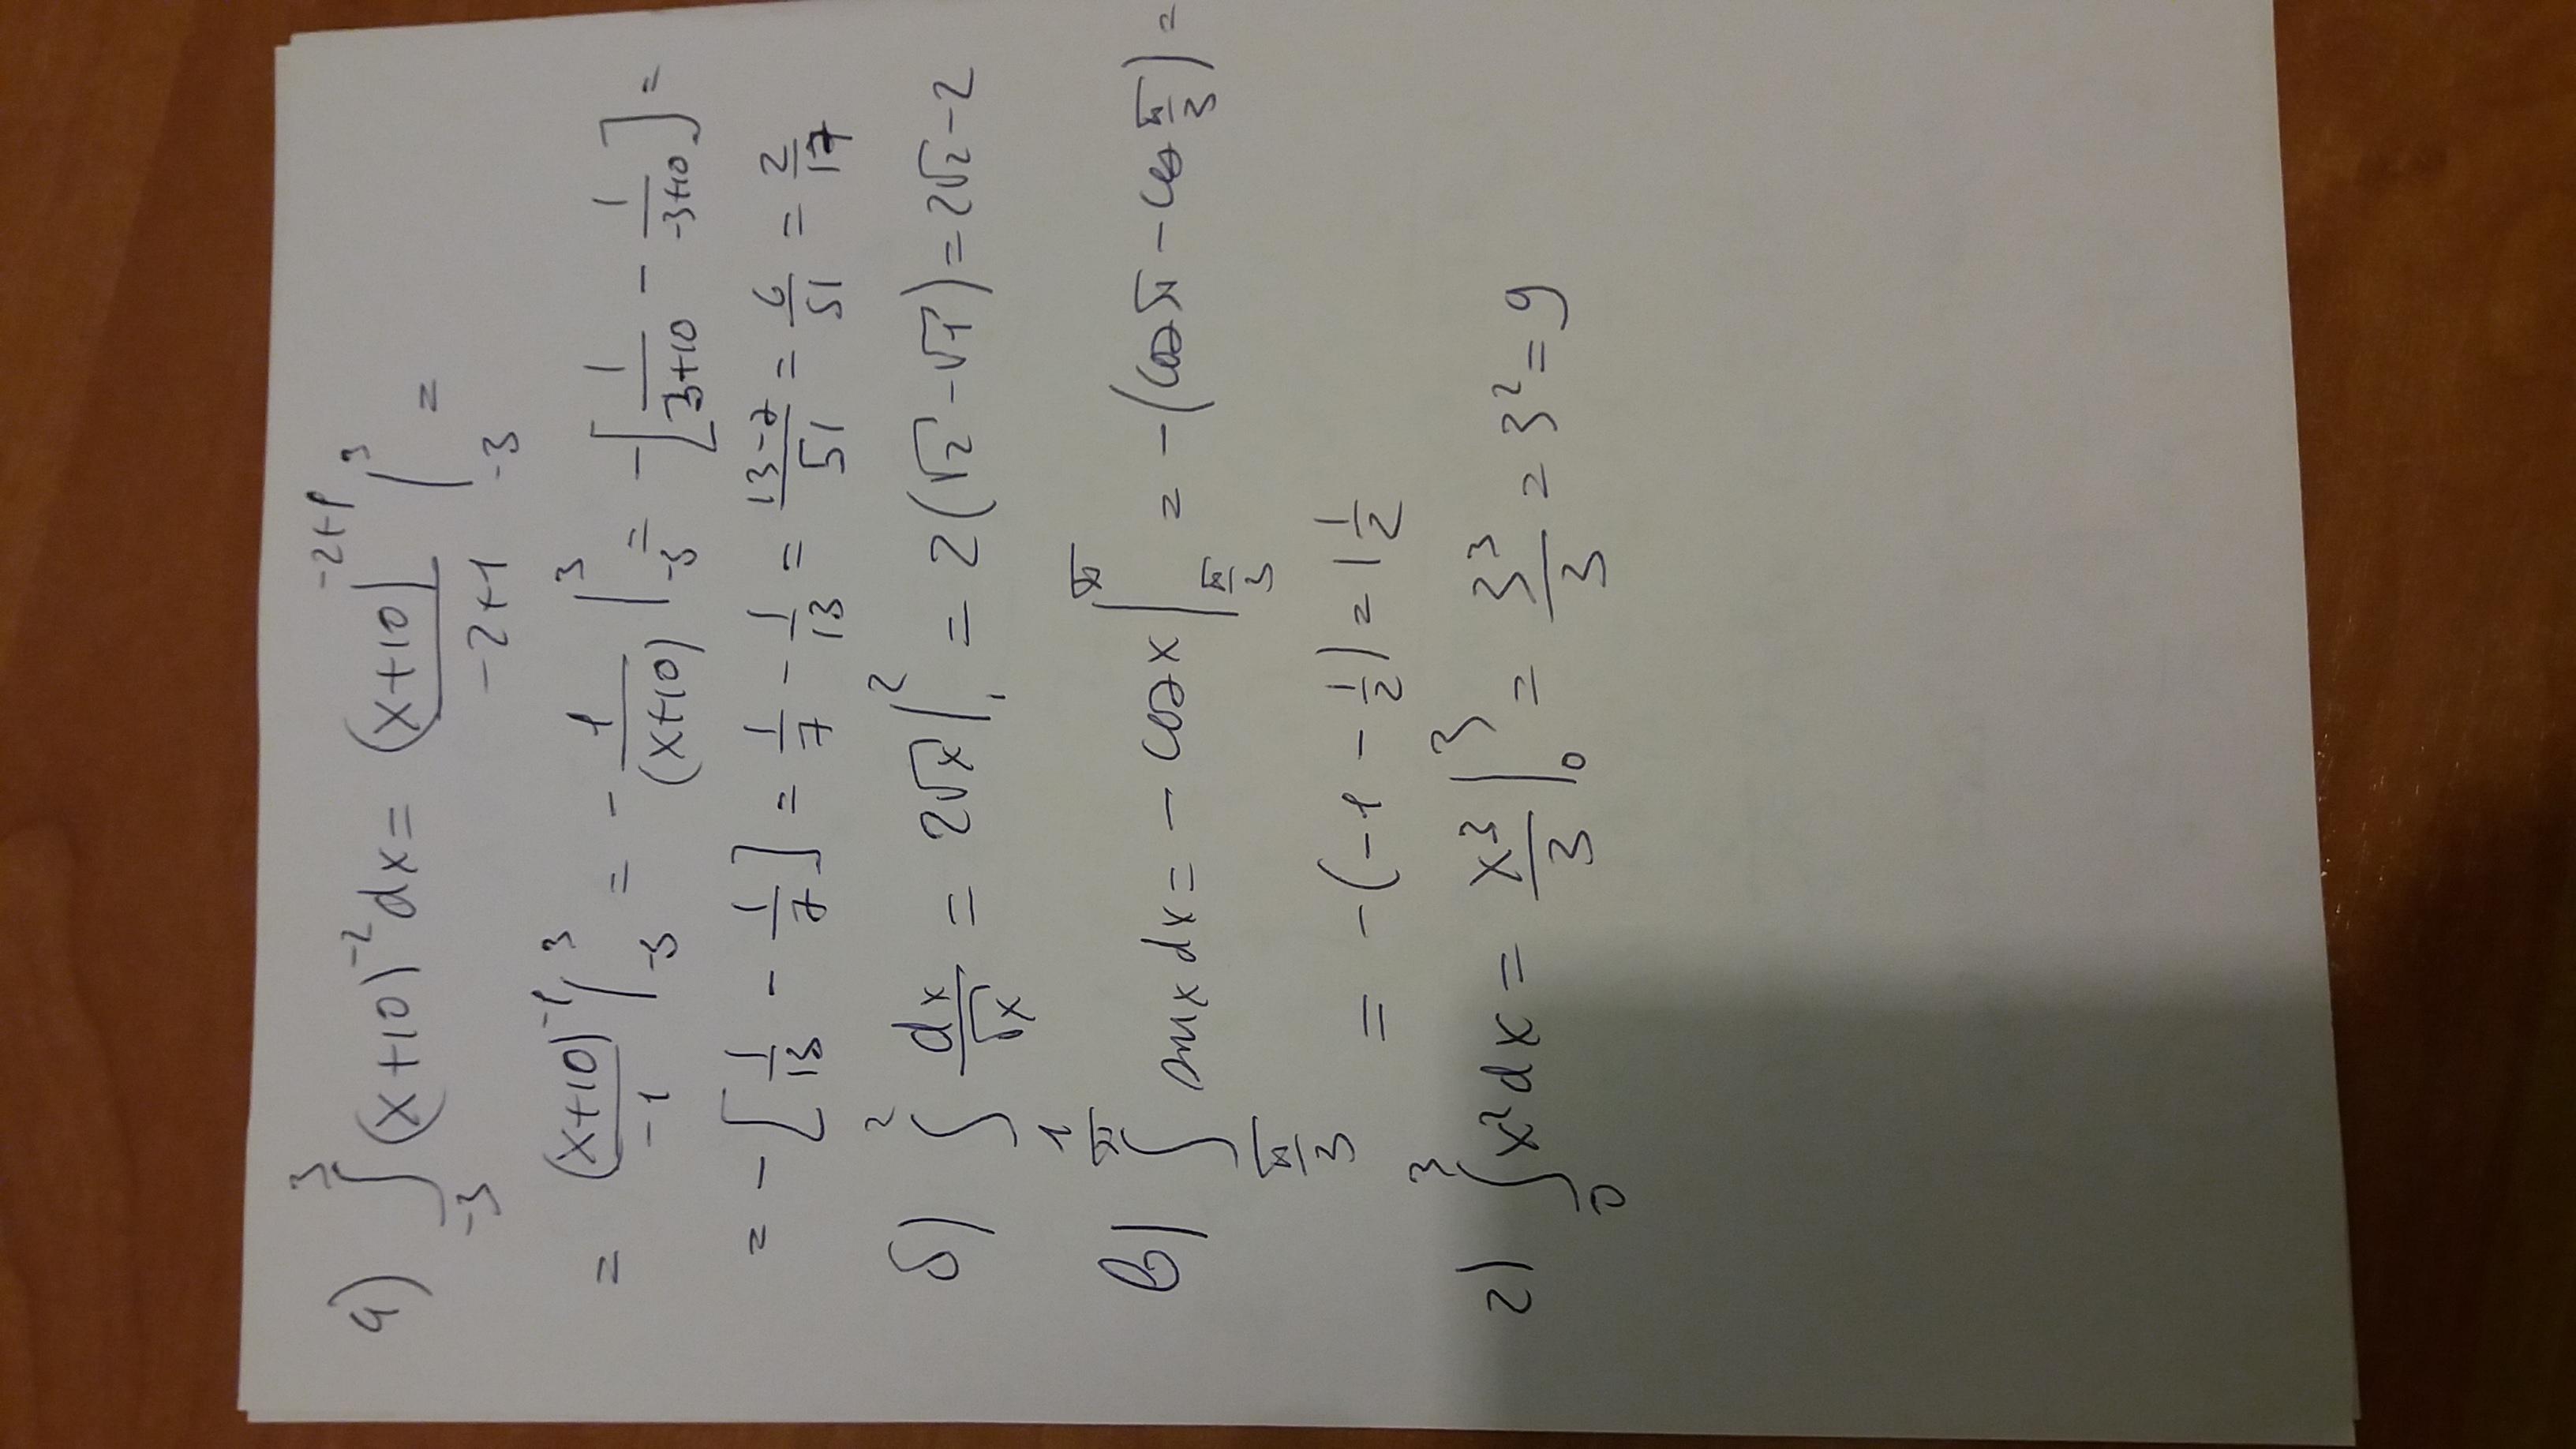 а) ∫₋₃³ (x+10)⁻² dx = (x+10)⁻²⁺¹/(-2+1) |₋₃³ =
= (x+10)⁻¹/(-1) |₋₃³ = - 1/(x+10) |₋₃³ = -[1/(3+10) - 1/(-3+10)] =
= -[1/13 - 1/7] = 1/7 - 1/13 = (13-7)/51 = 6/51 = 2/17
б) ∫₁² dx/√x = 2√x |₁² = 2(√2 - √1) = 2√2 - 2
в) ∫_{π/3}^{π} sin x dx = - cos x |_{π/3}^{π} = -(cos π - cos π/3) =
= -(-1 - 1/2) = 1 1/2
г) ∫₀³ x² dx = x³/3 |₀³ = 3³/3 = 3² = 9